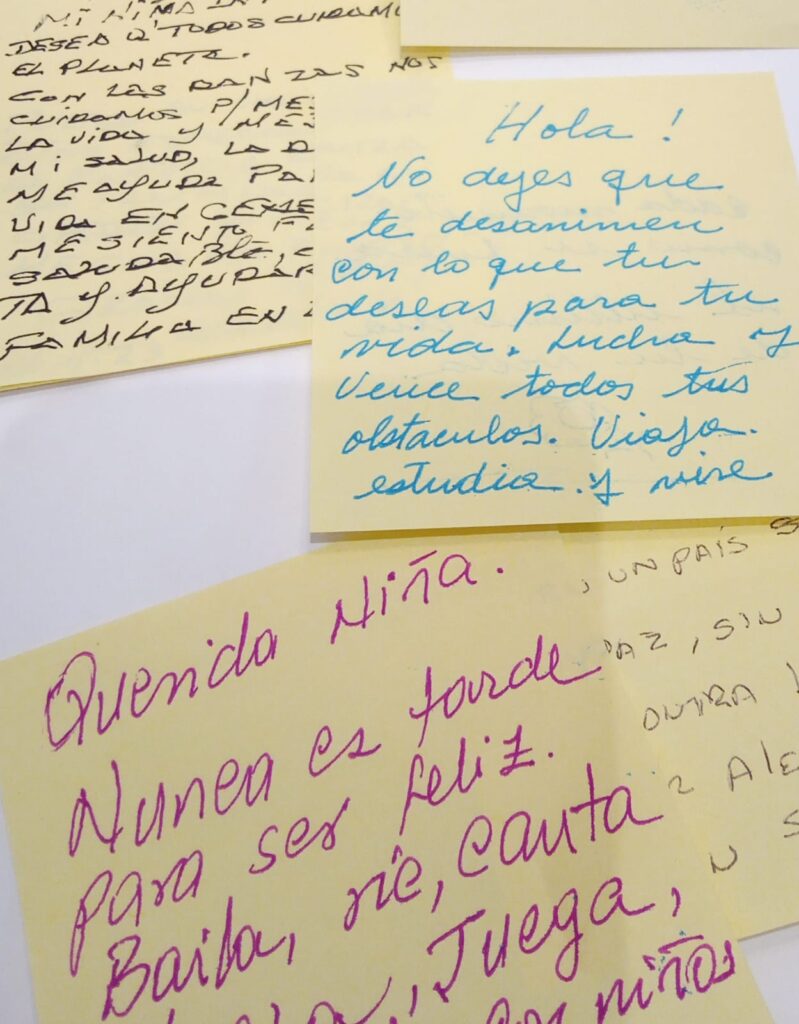 MI NIÑA
DESEA Q' TODOS CUIDAMO
EL PLANETA.
CON LAS DANZAS NOS
CUIDAMOS P/ME
LA VIDA Y ME
MI SALUD, LA D
ME AYUDA PA
VIDA EN GENE
ME SIENTO
SALUDABLE,
TA Y AYUDAR
FAMILIA EN
Hola!
No dejes que
te desanimen
con lo que tu
deseas para tu
vida. Lucha y
vence todos tus
obstaculos. Viaja.
estudia. y vive
, UN PAÍS S
AZ, SIN
ONTRA
Z ALE
N S
Querida Niña.
Nunca es tarde
para ser feliz.
Baila, ríe, canta
, Juega,
niños